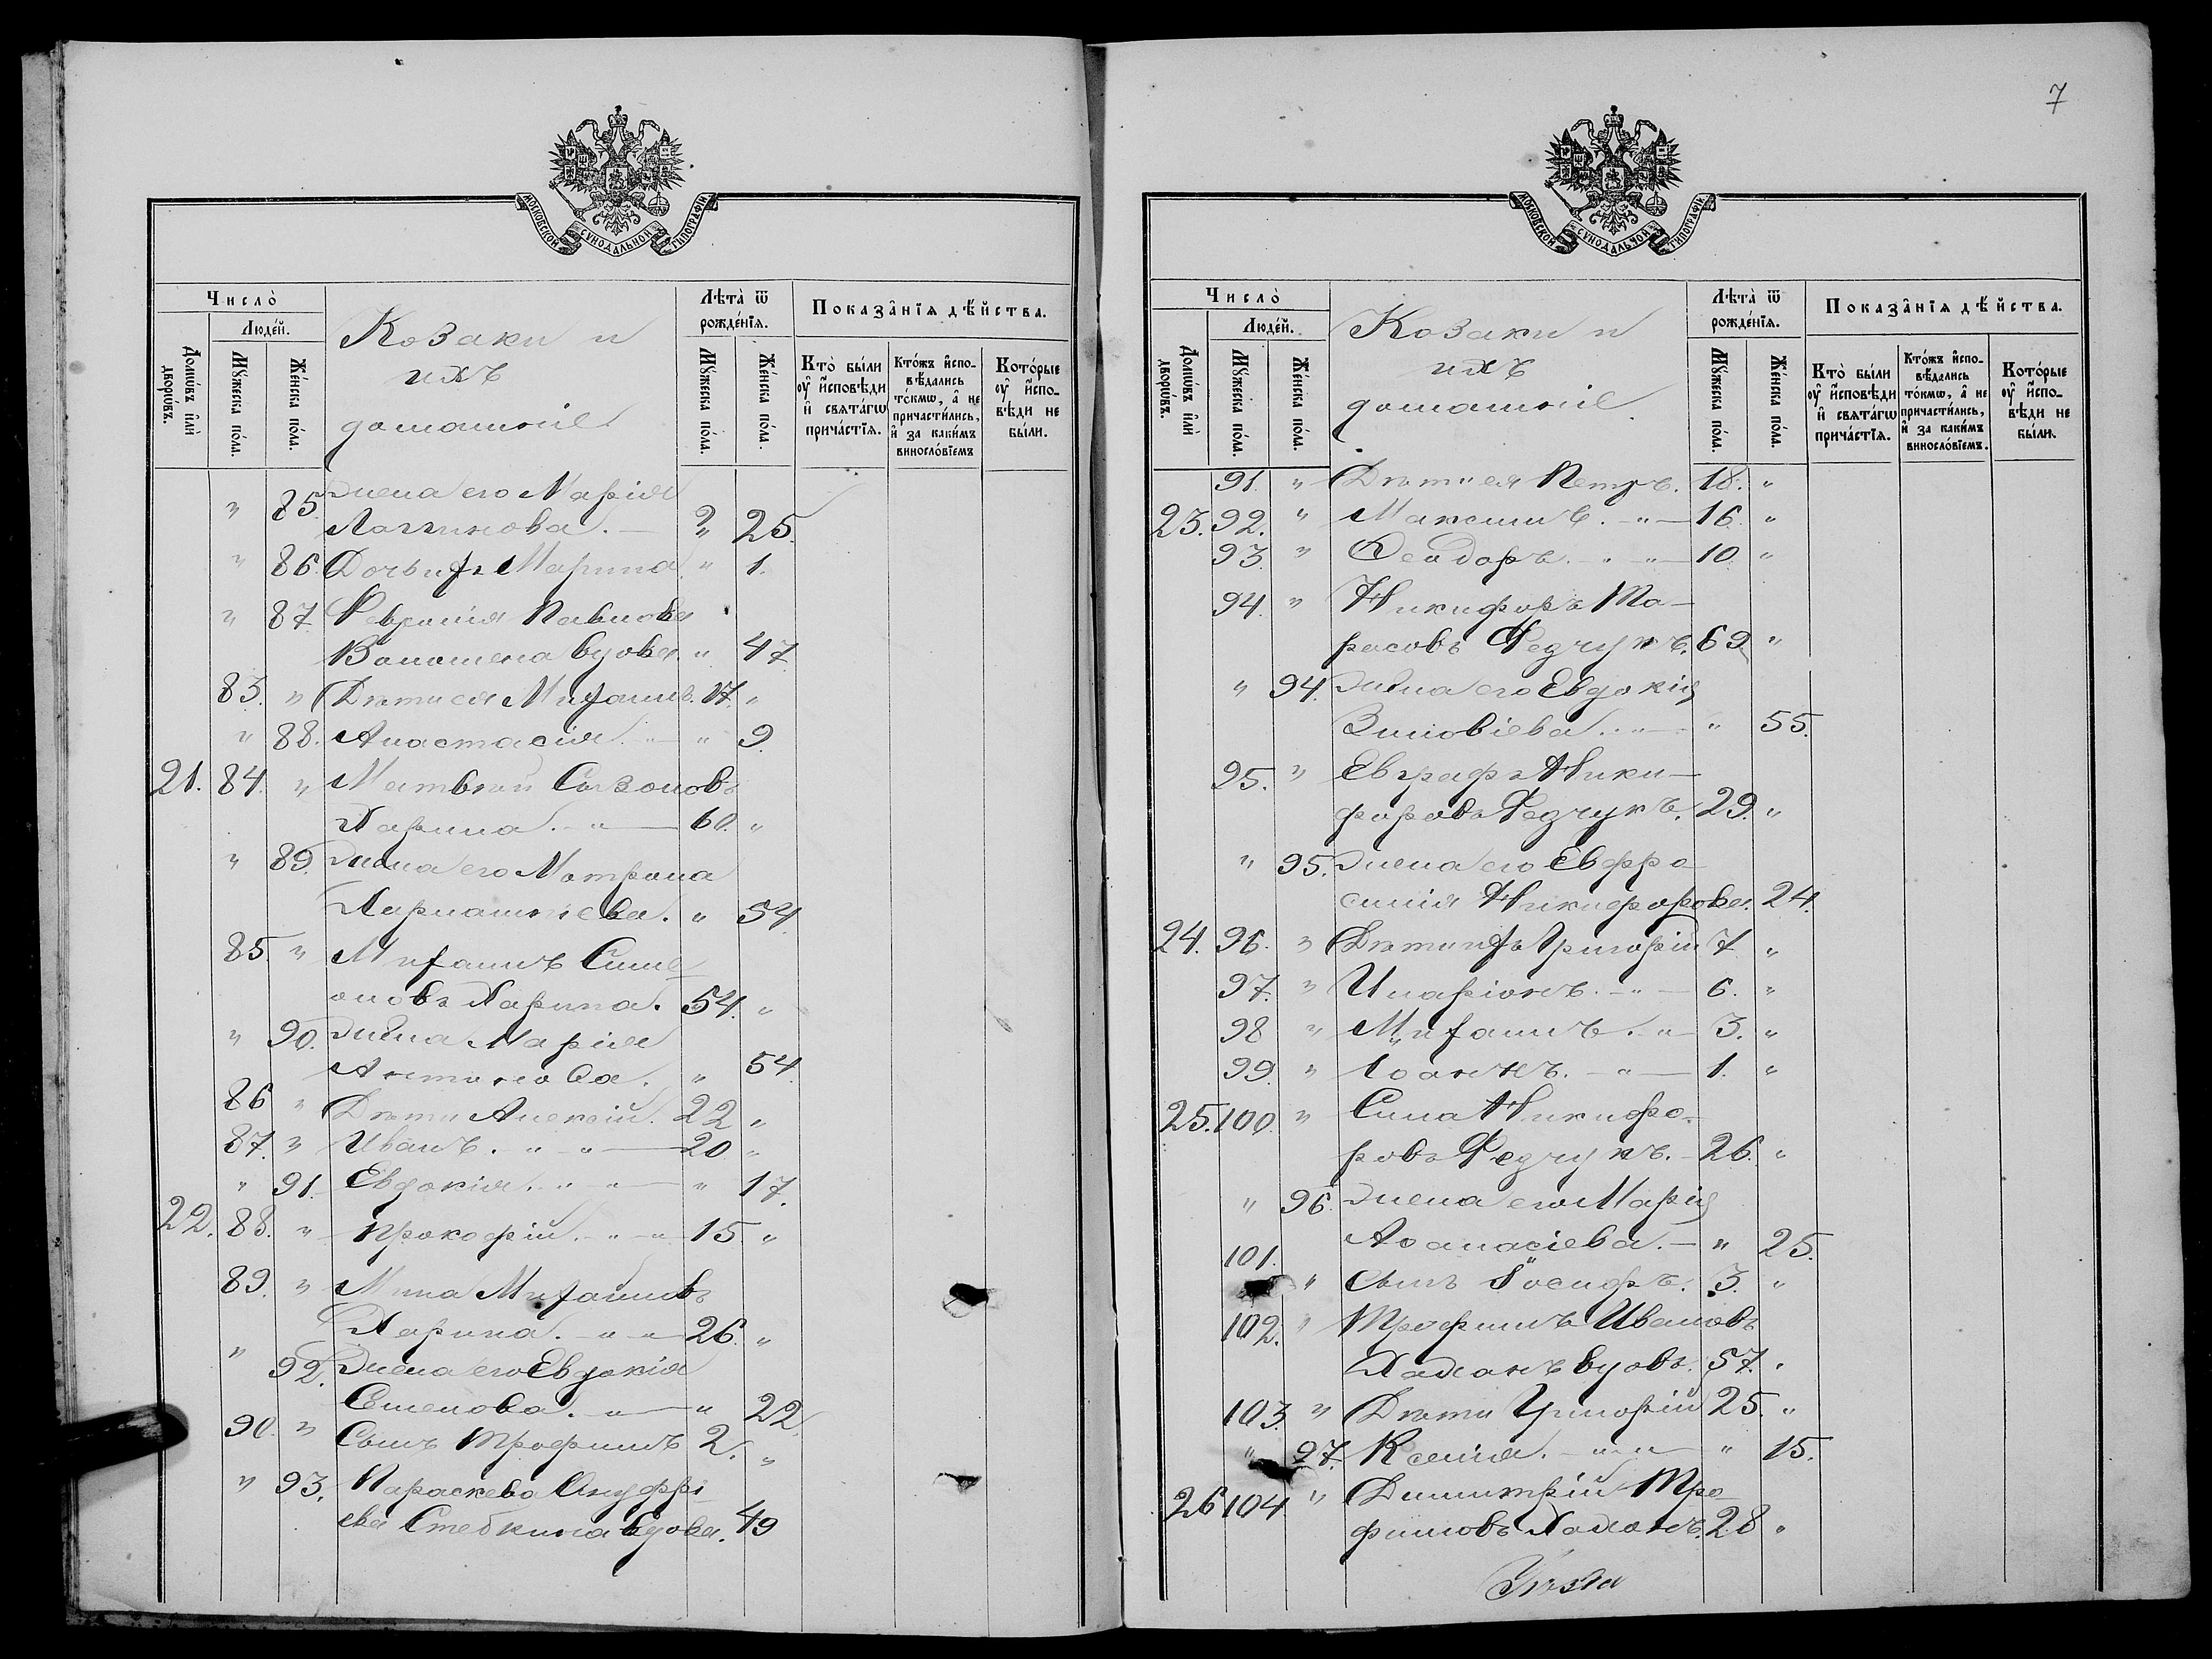 МОСКОВСКОЙ СѴНОДАЛЬНОЙ ТИПОГРАФІИ
Число̀
Люде́й.
Домѡ́въ и҆лѝ дворѡ́въ.
Мꙋ́жеска по́ла.
Же́нска по́ла.
Козаки и
ихъ
домашніе
Лѣта̀ ѿ рожде́нїѧ.
Мꙋ́жеска по́ла.
Же́нска по́ла.
Показа̑нїѧ дѣ́йства.
Кто̀ бы́ли ᲂу҆ и҆́сповѣди и҆ свѧта́гѡ прича́стїѧ.
Кто́жъ и҆спо-вѣ́дались то́кмѡ, а҆ не причасти́лись, и҆ за каки́мъ винослові́емъ
Кото́рые ᲂу҆ и҆́спо-вѣди не бы́ли.
" 85. Жена его Марія
Логгинова. — " 25.
" 86. Дочь ихъ Марина " 1.
" 87. Февронія Павлова
Волошена вдова. " 47.
83. " Дѣти ея Михаилъ. 17. "
" 88. Анастасія. — " 9.
21. 84. " Матвѣй Созоновъ
Ларина. — " — 60. "
" 89. Жена его Матрона
Харлампіева. " 54.
85. " Михаилъ Симе-
оновъ Ларина. 54. "
" 90. Жена Марія
Антонова. " 54.
86 " Дѣти Алексій. 22 "
87. " Иванъ. " " — 20 "
" 91. Евдокія. " " — " 17.
22. 88. " Прокофій. — " — " 15 "
89. " Михайловъ
Ларина. — " — " 26. "
" 92. Жена его Евдокія
Семенова. — " — " 22.
90. " Сынъ Трофимъ 2. "
" 93. Параскева Онуфрі-
ева Стебкина вдова. 49
7
МОСКОВСКОЙ СѴНОДАЛЬНОЙ ТИПОГРАФІИ
Число̀
Люде́й.
Домѡ́въ и҆лѝ дворѡ́въ.
Мꙋ́жеска по́ла.
Же́нска по́ла.
Козаки и
ихъ
домашніе.
Лѣта̀ ѿ рожде́нїѧ.
Мꙋ́жеска по́ла.
Же́нска по́ла.
Показа̑нїѧ дѣ́йства.
Кто̀ бы́ли ᲂу҆ и҆́сповѣди и҆ свѧта́гѡ прича́стїѧ.
Кто́жъ и҆спо-вѣ́дались то́кмѡ, а҆ не причасти́лись, и҆ за каки́мъ винослові́емъ.
Кото́рые ᲂу҆ и҆́спо-вѣди не бы́ли.
91. " Дѣти ея Петръ. 18. "
23. 92. " Максимъ. — " — 16. "
93. " Ѳеодоръ. — " — " 10. "
94. " Никифоръ Та-
расовъ Федчукъ. 69 "
" 94. Жена его Евдокія
Зиновіева. " — " 55.
95. " Евграфъ Ники-
форовъ Федчукъ. 29. "
" 95. Жена его Евфро-
синія Никифорова. 24.
24. 96. " Дѣти ихъ Григорій 7 "
97. " Иларіонъ. — " — 6. "
98 " Михаилъ. — " 3. "
99. " Іоаннъ. — " — 1. "
25. 100. " Сила Никифо-
ровъ Федчукъ. — 26. "
" 96. Жена его Марія
Аѳанасіева. — " 25.
101. " Сынъ Іосифъ. 3. "
102. " Трофимъ Ивановъ
вдовъ. 57. "
103. " Дѣти Григорій 25. "
" 97. Ксенія. — " — " 15.
26 104 " Димитрій Тро-
фимовъ 28 "